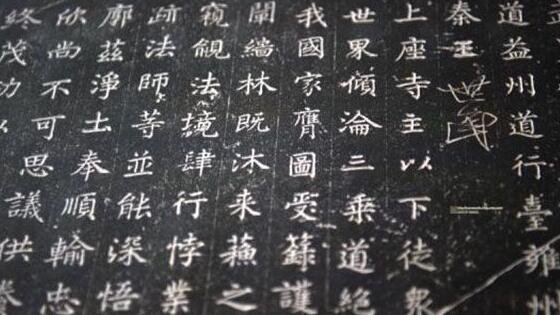 道益州道行臺雍州
秦王世民
上座寺主以下徒衆
世界傾淪三乘道絕
我國家膺圖受籙護
闡緇林既沐來蘇之
窺覦法境肆行悖業
跡法師等並能深悟
廓茲淨土奉順輸忠
欣尚不可思議供
終茂功以